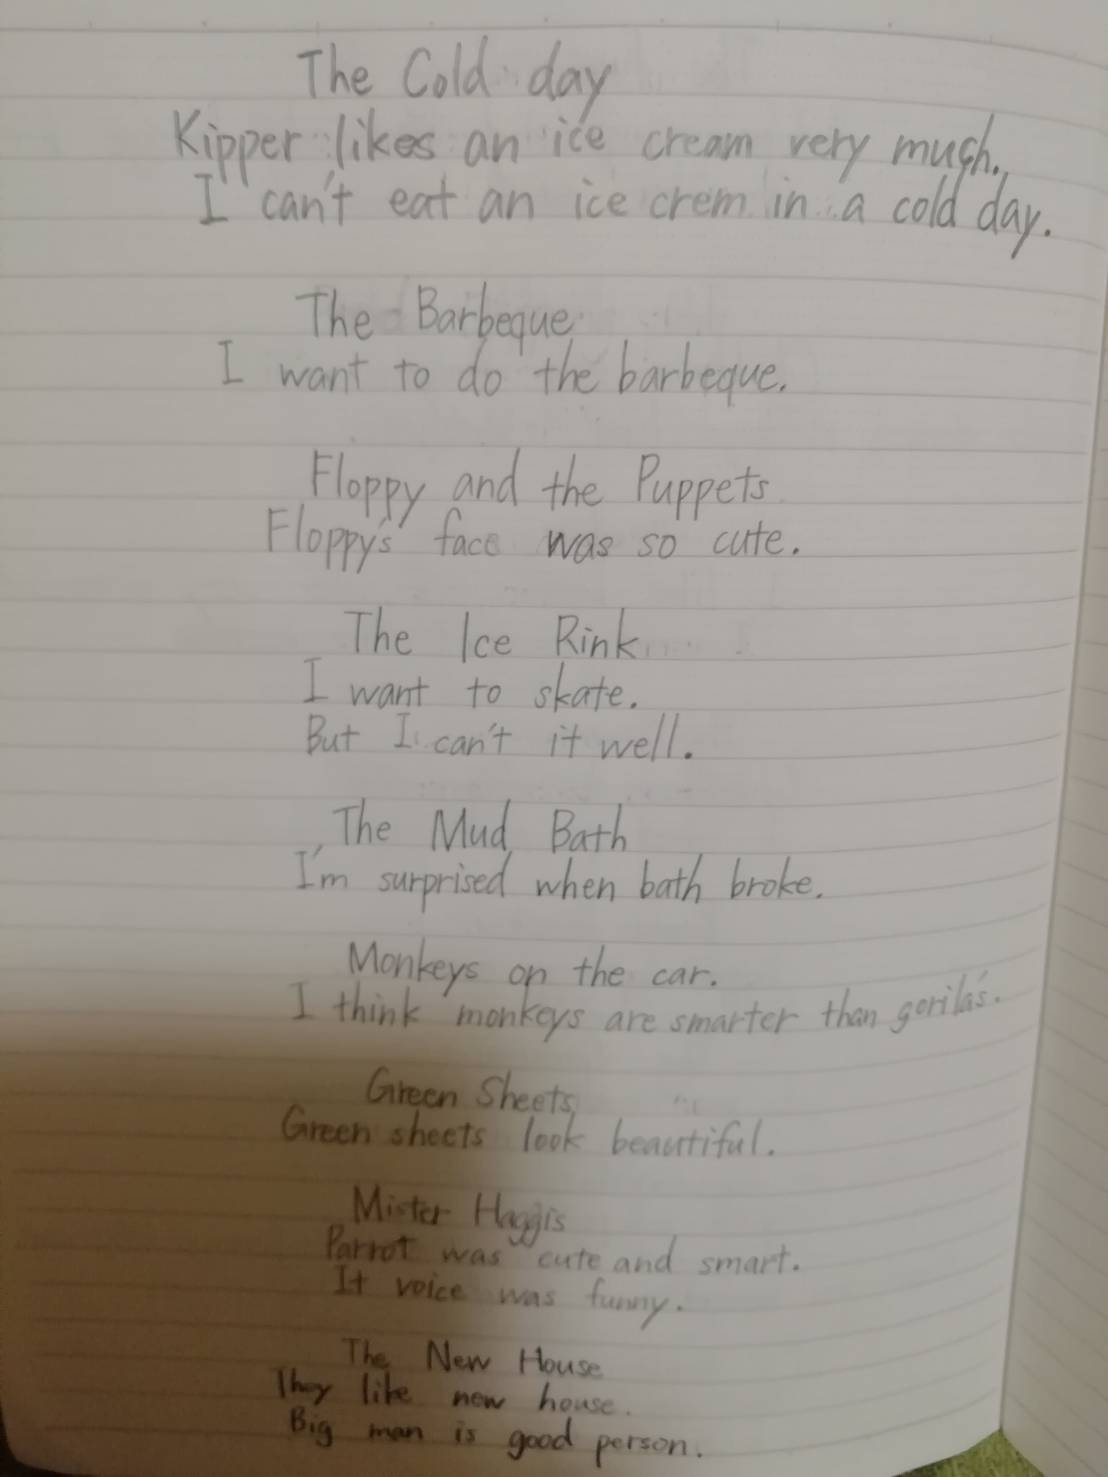 The Cold day
Kipper likes an ice cream very much.
I can't eat an ice crem in a cold day.
The Barbeque
I want to do the barbeque.
Floppy and the Puppets
Floppy's face was so cute.
The Ice Rink
I want to skate.
But I can't it well.
The Mud Bath
I'm surprised when bath broke.
Monkeys on the car.
I think monkeys are smarter than gorila's.
Green Sheets
Green sheets look beautiful.
Mister Haggis
Parrot was cute and smart.
It voice was funny.
The New House
They like new house.
Big man is good person.